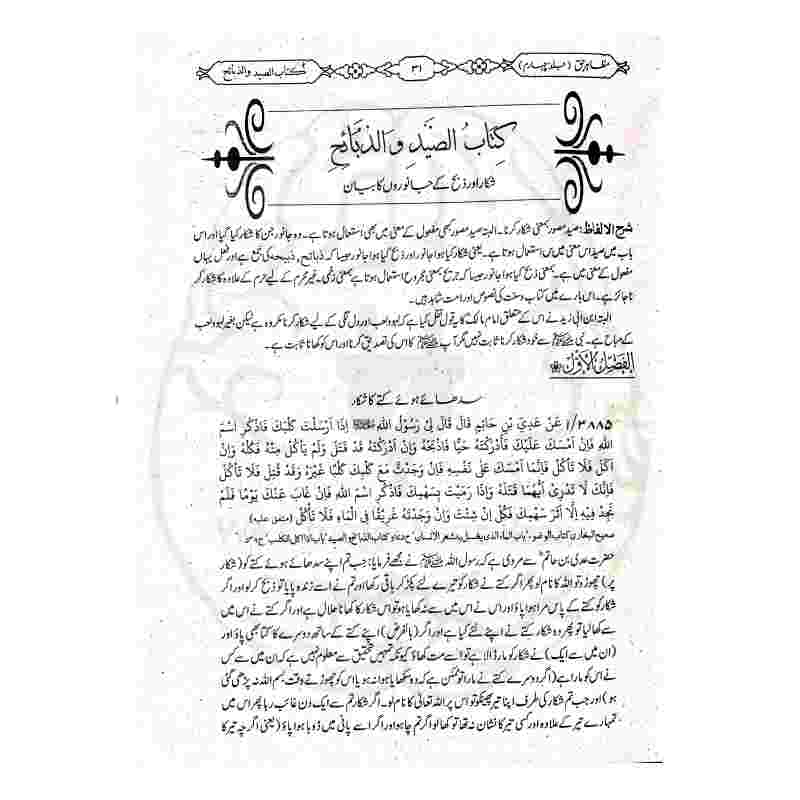 مظاہر حق (جلد چہارم)
۳۱
کتاب الصید والذبائح
کِتَابُ الصَّیْدِ وَالذَّبَائِحِ
شکار اور ذبح کے جانوروں کا بیان
شرح الالفاظ: صید مصدر بمعنی شکار کرنا۔ البتہ صید مصدر کبھی مفعول کے معنی میں بھی استعمال ہوتا ہے۔ وہ جانور جن کا شکار کیا گیا اور اس
باب میں صید اس معنی میں استعمال ہوتا ہے۔ یعنی شکار کیا ہوا جانور اور ذبح کیا ہوا جانور جیسا کہ ذبائح، ذبیحہ کی جمع ہے اور فعیل یہاں
مفعول کے معنی میں ہے۔ بمعنی ذبح کیا ہوا جانور جیسا کہ جریح بمعنی مجروح استعمال ہوتا ہے بمعنی زخمی۔ غیر محرم کے لیے حرم کے علاوہ کا شکار کر
نا جائز ہے۔ اس بارے میں کتاب و سنت کی نصوص اور امت شاہد ہیں۔
البتہ ابن ابی زید نے اس کے متعلق امام مالک کا یہ قول نقل کیا ہے کہ لہو و لعب اور دل لگی کے لیے شکار کرنا مکروہ ہے لیکن بغیر لہو و لعب
کے مباح ہے۔ نبی ﷺ سے خود شکار کرنا ثابت نہیں مگر آپ ﷺ کا اس کی تصدیق کرنا اور اس کو کھانا ثابت ہے۔
الفصل الاول
سدھائے ہوئے کتے کا شکار
۱/۳۸۸۵ عَنْ عَدِيِّ بْنِ حَاتِمٍ قَالَ قَالَ لِيْ رَسُوْلُ اللهِ ﷺ إِذَا أَرْسَلْتَ كَلْبَكَ فَاذْكُرِ اسْمَ
اللهِ فَإِنْ أَمْسَكَ عَلَيْكَ فَأَدْرَكْتَهُ حَيًّا فَاذْبَحْهُ وَإِنْ أَدْرَكْتَهُ قَدْ قَتَلَ وَلَمْ يَأْكُلْ مِنْهُ فَكُلْهُ وَإِنْ
أَكَلَ فَلَا تَأْكُلْ فَإِنَّمَا أَمْسَكَ عَلَى نَفْسِهِ فَإِنْ وَجَدْتَ مَعَ كَلْبِكَ كَلْبًا غَيْرَهُ وَقَدْ قُتِلَ فَلَا تَأْكُلْ
فَإِنَّكَ لَا تَدْرِيْ أَيُّهُمَا قَتَلَهُ وَإِذَا رَمَيْتَ بِسَهْمِكَ فَاذْكُرِ اسْمَ اللهِ فَإِنْ غَابَ عَنْكَ يَوْمًا فَلَمْ
تَجِدْ فِيْهِ إِلَّا أَثَرَ سَهْمِكَ فَكُلْ إِنْ شِئْتَ وَإِنْ وَجَدْتَهُ غَرِيْقًا فِي الْمَاءِ فَلَا تَأْكُلْ (متفق علیه)
صحیح البخاری کتاب الوضوء، باب الماء الذی یغسل به شعر الانسان و کتاب الذبائح والصید باب اذا اکل الکلب
حضرت عدی بن حاتم سے مروی ہے کہ رسول اللہ ﷺ نے مجھے فرمایا: جب تم اپنے سدھائے ہوئے کتے کو (شکار
پر) چھوڑو تو اللہ کا نام لو پھر اگر کتے نے شکار کو تیرے لئے پکڑ کر باقی رکھا اور تم نے اسے زندہ پایا تو ذبح کر لو اور اگر
شکار کو کتے کے پاس مرا ہوا پاؤ اور اس نے اس میں سے نہ کھایا ہو تو اس شکار کا کھانا حلال ہے اور اگر کتے نے اس میں
سے کھا لیا تو پھر وہ شکار کتے نے اپنے لئے کیا ہے اور اگر (بالفرض) اپنے کتے کے ساتھ دوسرے کا کتا بھی پاؤ اور
(ان میں سے ایک) نے شکار کو مار ڈالا ہے تو اسے مت کھاؤ کیونکہ تمہیں تحقیق سے معلوم نہیں ہے کہ ان میں سے کس
نے اس کو مارا ہے (اگر دوسرے کتے نے مارا تو ممکن ہے کہ وہ سکھایا ہوا نہ ہو یا اس کو چھوڑتے وقت بسم اللہ نہ پڑھی گئی
ہو) اور جب تم شکار کی طرف اپنا تیر پھینکو تو اس پر اللہ تعالیٰ کا نام لو۔ اگر شکار تم سے ایک دن غائب رہا پھر اس میں
تمہارے تیر کے علاوہ اور کسی تیر کا نشان نہ تھا تو کھا لو اگر تم چاہو اور اگر اسے پانی میں ڈوبا ہوا پاؤ (یعنی اگرچہ تیر کا